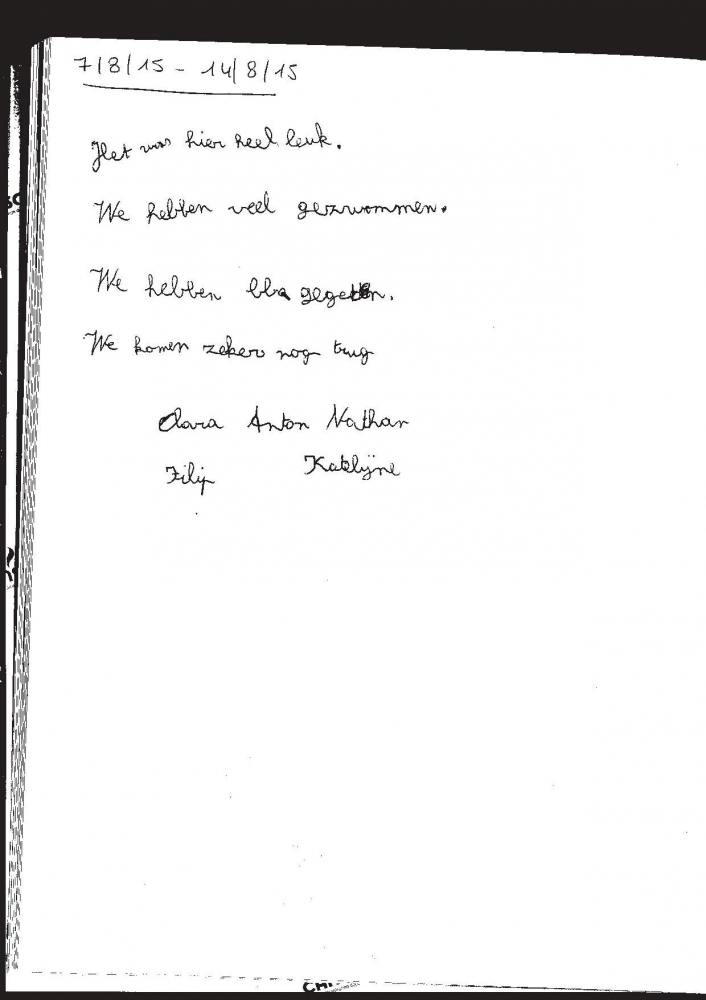 7/8/15 - 14/8/15
Het was hier heel leuk.
We hebben veel gezwommen.
We hebben bbq gegeten.
We komen zeker nog trug
Clara Anton Nathan
Filip Katlijne